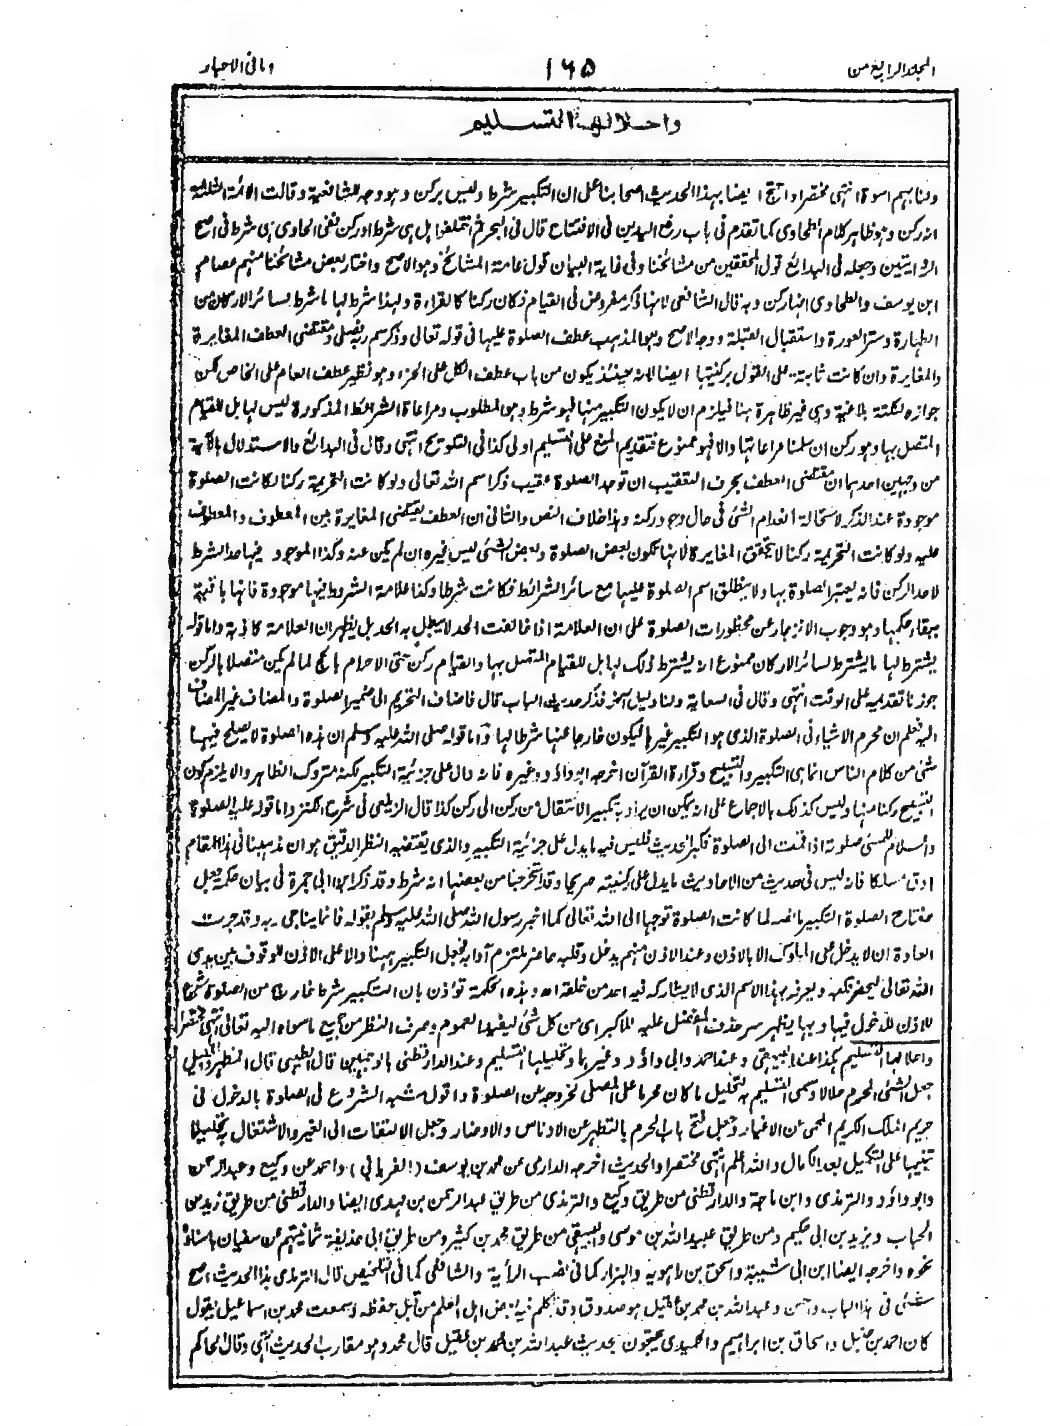 المجلد الرابع من
١٦٥
امانى الاحبار
واحلالها التسليم
ولنا بهم اسوة انتهى مختصرا واحتج ايضا بهذا الحديث اصحابنا على ان التكبير شرط وليس بركن وهو وجه للشافعية وقالت الائمة الثلاثة
انه ركن وهو ظاهر كلام الطحاوى كما تقدم فى باب رفع اليدين فى الافتتاح قال فى البحر ثم اختلفوا هل هى شرط او ركن ففى الحاوى هى شرط فى اصح
الروايتين وجعله فى البدائع قول المحققين من مشائخنا وفى غاية البيان قول عامة المشائخ وهو الاصح واختار بعض مشائخنا منهم عصام
ابن يوسف والطحاوى انها ركن وبه قال الشافعى لانها ذكر مفروض فى القيام فكان ركنا كالقراءة ولهذا شرط لها ما شرط لسائر الاركان من
الطهارة وستر العورة واستقبال القبلة ووجه الاصح وهو المذهب عطف الصلوة عليها فى قوله تعالى وذكر اسم ربه فصلى ومقتضى العطف المغايرة
والمغايرة وان كانت ثابتة على القول بركنيتها ايضا لانه حينئذ يكون من باب عطف الكل على الجزء وهو نظير عطف العام على الخاص لكن
جوازه لنكتة بلاغية وهى غير ظاهرة هنا فيلزم ان لا يكون التكبير منها فهو شرط وهو المطلوب ومراعاة الشرائط المذكورة ليس لها بل للقيام
المتصل بها وهو ركن ان سلمنا مراعاتها والا فهو ممنوع فتقديم المنع على التسليم اولى كذا فى التلويح انتهى وقال فى البدائع والاستدلال بالآية
من وجهين احدهما ان مقتضى العطف بحرف التعقيب ان توجد الصلوة عقيب ذكر اسم الله تعالى ولو كانت التحريمة ركنا لكانت الصلوة
موجودة عند الذكر لاستحالة انعدام الشئ فى حال وجود ركنه وهذا خلاف النص والثانى ان العطف يقتضى المغايرة بين المعطوف والمعطوف
عليه ولو كانت التحريمة ركنا لا يتحقق المغايرة لانها تكون بعض الصلوة وبعض الشئ ليس غيره ان لم يكن عنه وكذا الموجود فيها حد الشرط
لاحد الركن فانه يعتبر الصلوة بها ولا ينطلق اسم الصلوة عليها مع سائر الشرائط فكانت شرطا وكذا علامة الشروط فيها موجودة فانها باقية
ببقاء حكمها وهو وجوب الانزجار عن محظورات الصلوة على ان العلامة اذا خالفت الحد لا يبطل به الحد بل يظهر ان العلامة كاذبة واما قوله
يشترط لها ما يشترط لسائر الاركان ممنوع انه يشترط ذلك لها بل للقيام المتصل بها والقيام ركن حتى الاحرام بالحج لما لم يكن متصلا بالركن
جوزنا تقديمه على الوقت انتهى وقال فى السعاية ولنا دليل آخر فذكر حديث الباب قال فاضاف التحريم الى ضمير الصلوة والمضاف غير المضاف
اليه فعلم ان محرم الاشياء فى الصلوة الذى هو التكبير غيرها فيكون خارجا عنها شرطا لها وأما قوله صلى الله عليه وسلم ان هذه الصلوة لا يصلح فيها
شئ من كلام الناس انما هى التكبير والتسبيح وقراءة القرآن اخرجه ابو داؤد وغيره فانه دال على جزئية التكبير لكنه متروك الظاهر والا يلزم كون
التسبيح ركنا منها وليس كذلك بالاجماع على انه يمكن ان يراد به تكبير الانتقال من ركن الى ركن كذا قال الزيلعى فى شرح الكنز واما قوله عليه الصلوة
والسلام للمسئ صلوته اذا قمت الى الصلوة فكبر الحديث فليس فيه ما يدل على جزئية التكبير والذى يقتضيه النظر الدقيق هو ان مذهبنا فى هذا المقام
ادق مسلكا فانه ليس فى حديث من الاحاديث ما يدل على ركنيته صريحا وقد استخرجنا من بعضها انه شرط وقد ذكر ابن ابى جمرة فى بيان حكمة جعل
مفتاح الصلوة التكبير ما نصه لما كانت الصلوة توجها الى الله تعالى كما اخبر رسول الله صلى الله عليه وسلم بقوله فانما يناجى ربه وقد جرت
العادة ان لا يدخل على الملوك الا بالاذن وعند الاذن منهم يدخل وقلبه حاضر ملتزم آدابه فجعل التكبير ههنا والا على الاذن للوقوف بين يدى
الله تعالى ليحضر قلبه ويعرفه بهذا الاسم الذى لا يشاركه فيه احد من خلقه اه وبهذه الحكمة تؤذن بان التكبير شرط خارج من الصلوة شرعا
للاذن للدخول فيها وبها يظهر سر حذف المفضل عليه للاكبر اى من كل شئ ليفيد العموم وصرف النظر من جميع ما سواه اليه تعالى انتهى مختصرا
واحلالها التسليم كذا عند البيهقى وعند احمد وابى داؤد وغيرهما وتحليلها التسليم وعند الدارقطنى بالوجهين قال الطيبى قال المظهر التحليل
جعل الشئ المحرم حلالا وسمى التسليم به لتحليل ما كان محرما على المصلى لخروجه عن الصلوة واقول مشبه الشروع فى الصلوة بالدخول فى
حريم الملك الكريم المحمى عن الاغيار وجعل فتح باب الحرم بالتطهر عن الادناس والاوضار وجعل الالتفات الى الغير والاشتغال به تحليلا
تنبيها على التكميل بعد الكمال والله اعلم انتهى مختصرا والحديث اخرجه الدارمى عن محمد بن يوسف (الفريابى) واحمد عن وكيع وعبد الرحمن
وابو داؤد والترمذى وابن ماجة والدارقطنى من طريق وكيع والترمذى من طريق عبد الرحمن بن مهدى ايضا والدارقطنى من طريق زيد بن
الحباب ويزيد بن ابى حكيم ومن طريق عبيد الله بن موسى والبيهقى من طريق محمد بن كثير ومن طريق ابى حذيفة ثمانيتهم عن سفيان باسناده
نحوه واخرجه ايضا ابن ابى شيبة واسحق بن راهويه والبزار كما فى نصب الراية والشافعى كما فى التلخيص قال الترمذى هذا الحديث اصح
شئ فى هذا الباب واحسن وعبد الله بن محمد بن عقيل هو صدوق وقد تكلم فيه بعض اهل العلم من قبل حفظه وسمعت محمد بن اسماعيل يقول
كان احمد بن حنبل واسحاق بن ابراهيم والحميدى يحتجون بحديث عبد الله بن محمد بن عقيل قال محمد وهو مقارب الحديث انتهى وقال الحاكم